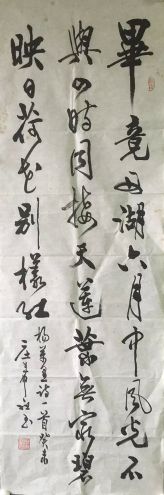 畢竟西湖六月中風光不
與四時同接天蓮葉無窮碧
映日荷花別樣紅
楊萬里詩一首癸未